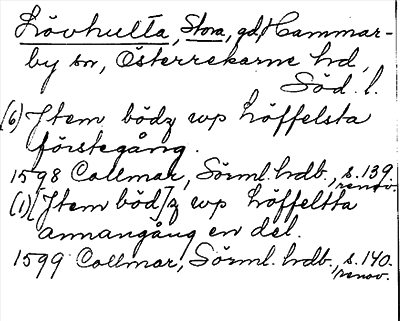 Lövhulta, Stora, gd, Hammar-
by sn, Österrekarne hd,
Söd. l.
(6) Jtem bödz wp Löffelsta
förstegång.
1598 Collmar, Sörml. hdb., s. 139.
renov.
(1) [Jtem böd]z wp Löffeltta
annangång en del.
1599 Collmar, Sörml. hrdb., s. 140.
renov.